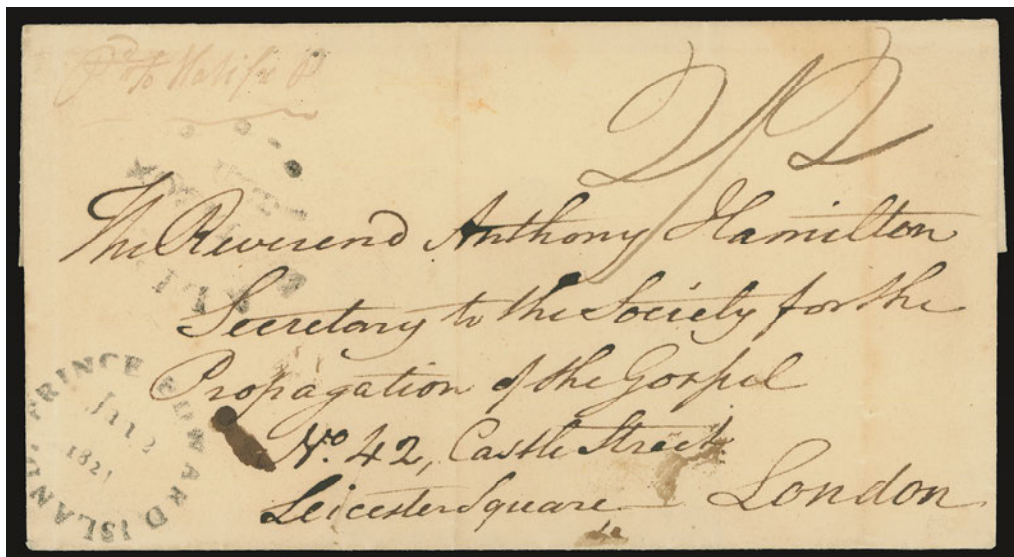 Pd to Halifx
2/2
The Reverend Anthony Hamilton
Secretary to the Society for the
Propagation of the Gospel
No. 42, Castle Street
Leicester Square London
PRINCE EDWARD ISLAND
1821